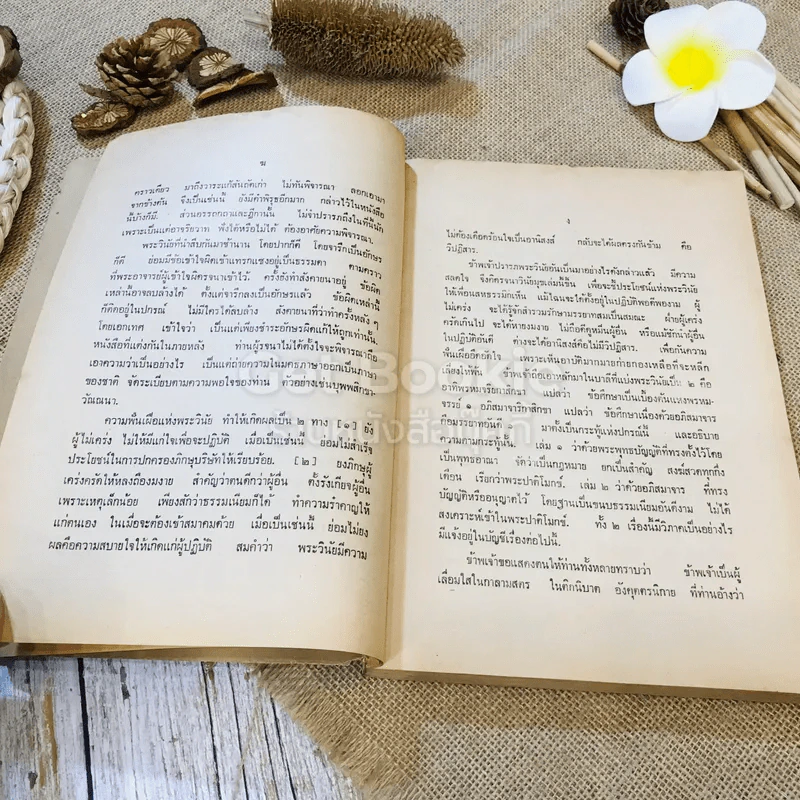 ฆ
คราวเดียว มาถึงวาระแก้สันถัดเก่า ไม่ทันพิจารณา ลอกเอามา
จากข้างต้น จึงเป็นเช่นนี้ ยังมีคำพิรุธอีกมาก กล่าวไว้ในหนังสือ
นี้บ้างก็มี. ส่วนอรรถกถาและฎีกานั้น ไม่จำปรารภถึงในที่นี้นัก
เพราะเป็นแต่อาจริยวาท ฟังได้หรือไม่ได้ ต้องอาศัยความพิจารณา.
พระวินัยที่นำสืบกันมาช้านาน โดยปากก็ดี โดยจารึกเป็นอักษร
ก็ดี ย่อมมีข้อเข้าใจผิดเข้าแทรกแซงอยู่เป็นธรรมดา ตามคราว
ที่พระอาจารย์ผู้เข้าใจผิดรจนาเข้าไว้. ครั้งยังทำสังคายนาอยู่ ข้อผิด
เหล่านี้อาจลบล้างได้ ตั้งแต่จารึกลงเป็นอักษรแล้ว ข้อผิดเหล่านี้
ก็ติดอยู่ในปกรณ์ ไม่มีใครได้ลบล้าง สังคายนาที่ว่าทำครั้งหลัง ๆ
โดยเอกเทศ เข้าใจว่า เป็นแต่เพียงชำระอักษรผิดแก้ให้ถูกเท่านั้น.
หนังสือที่แต่งกันในภายหลัง ท่านผู้รจนาไม่ได้ตั้งใจจะพิจารณาถือ
เอาความว่าเป็นอย่างไร เป็นแต่ถ่ายความในมคธภาษาออกเป็นภาษา
ของชาติ จัดระเบียบตามความพอใจของท่าน ตัวอย่างเช่นบุพพสิกขา-
วัณณนา.
ความฟั่นเฝือแห่งพระวินัย ทำให้เกิดผลเป็น ๒ ทาง [๑] ยัง
ผู้ไม่เคร่ง ไม่ให้มีแก่ใจเพื่อจะปฏิบัติ เมื่อเป็นเช่นนี้ ย่อมไม่สำเร็จ
ประโยชน์ในการปกครองภิกษุบริษัทให้เรียบร้อย. [๒] ยังภิกษุผู้
เคร่งครัดให้หลงถือมงาย สำคัญว่าตนดีกว่าผู้อื่น ตั้งรังเกียจผู้อื่น
เพราะเหตุเล็กน้อย เพียงสักว่าธรรมเนียมก็ได้ ทำความรำคาญให้
แก่ตนเอง ในเมื่อจะต้องเข้าสมาคมด้วย เมื่อเป็นเช่นนี้ ย่อมไม่ยัง
ผลคือความสบายใจให้เกิดแก่ผู้ปฏิบัติ สมคำว่า พระวินัยมีความ
ง
ไม่ต้องเดือดร้อนใจเป็นอานิสงส์ กลับจะได้ผลตรงกันข้าม คือ
วิปฏิสาร.
ข้าพเจ้าปรารภพระวินัยอันเป็นมาอย่างไรดังกล่าวแล้ว มีความ
สลดใจ จึงคิดรจนาวินัยมุขเล่มนี้ขึ้น เพื่อจะชี้ประโยชน์แห่งพระวินัย
ให้เพื่อนสหธรรมิกเห็น แม้ไฉนจะได้ตั้งอยู่ในปฏิบัติพอดีพองาม ผู้
ไม่เคร่ง จะได้รู้จักสำรวมรักษามรรยาทสมเป็นสมณะ ฝ่ายผู้เคร่ง
ครัดเกินไป จะได้หายงมงาย ไม่ถือดีดูหมิ่นผู้อื่น หรือแม้ชักนำผู้อื่น
ในปฏิบัติอันดี ต่างจะได้อานิสงส์คือไม่มีวิปฏิสาร. เพื่อกันความ
ฟั่นเฝือยืดยืดใจ เพราะเห็นอาบัติมากมายก่ายกองเหลือที่จะหลีก
เลี่ยงให้พ้น ข้าพเจ้าถือเอาหลักมาในบาลีที่แบ่งพระวินัยเป็น ๒ คือ
อาทิพรหมจริยกาสิกขา แปลว่า ข้อศึกษาเป็นเบื้องต้นแห่งพรหม-
จรรย์ ๑ อภิสมาจาริกาสิกขา แปลว่า ข้อศึกษาเนื่องด้วยอภิสมาจาร
คือมรรยาทอันดี ๑ มาตั้งเป็นกระทู้แห่งปกรณ์นี้ และอธิบาย
ความตามกระทู้นั้น. เล่ม ๑ ว่าด้วยพระพุทธบัญญัติที่ทรงตั้งไว้โดย
เป็นพุทธอาณา จัดว่าเป็นกฎหมาย ยกเป็นสำคัญ สงฆ์สวดทุกกึ่ง
เดือน เรียกว่าพระปาติโมกข์. เล่ม ๒ ว่าด้วยอภิสมาจาร ที่ทรง
บัญญัติหรืออนุญาตไว้ โดยฐานเป็นขนบธรรมเนียมอันดีงาม ไม่ได้
สงเคราะห์เข้าในพระปาติโมกข์. ทั้ง ๒ เรื่องนี้มีวิภาคเป็นอย่างไร
มีแจ้งอยู่ในบัญชีเรื่องต่อไปนี้.
ข้าพเจ้าขอแสดงตนให้ท่านทั้งหลายทราบว่า ข้าพเจ้าเป็นผู้
เลื่อมใสในกาลามสูตร ในติกนิบาต อังคุตตรนิกาย ที่ท่านอ้างว่า
Get Bookie
ร้านหนังสือกู๊ดกี้